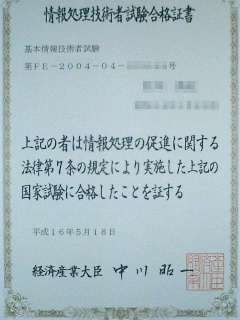 情報処理技術者試験合格証書
基本情報技術者試験
第FE-2004-04-      号
上記の者は情報処理の促進に関する
法律第7条の規定により実施した上記の
国家試験に合格したことを証する
平成16年5月18日
経済産業大臣 中川昭一